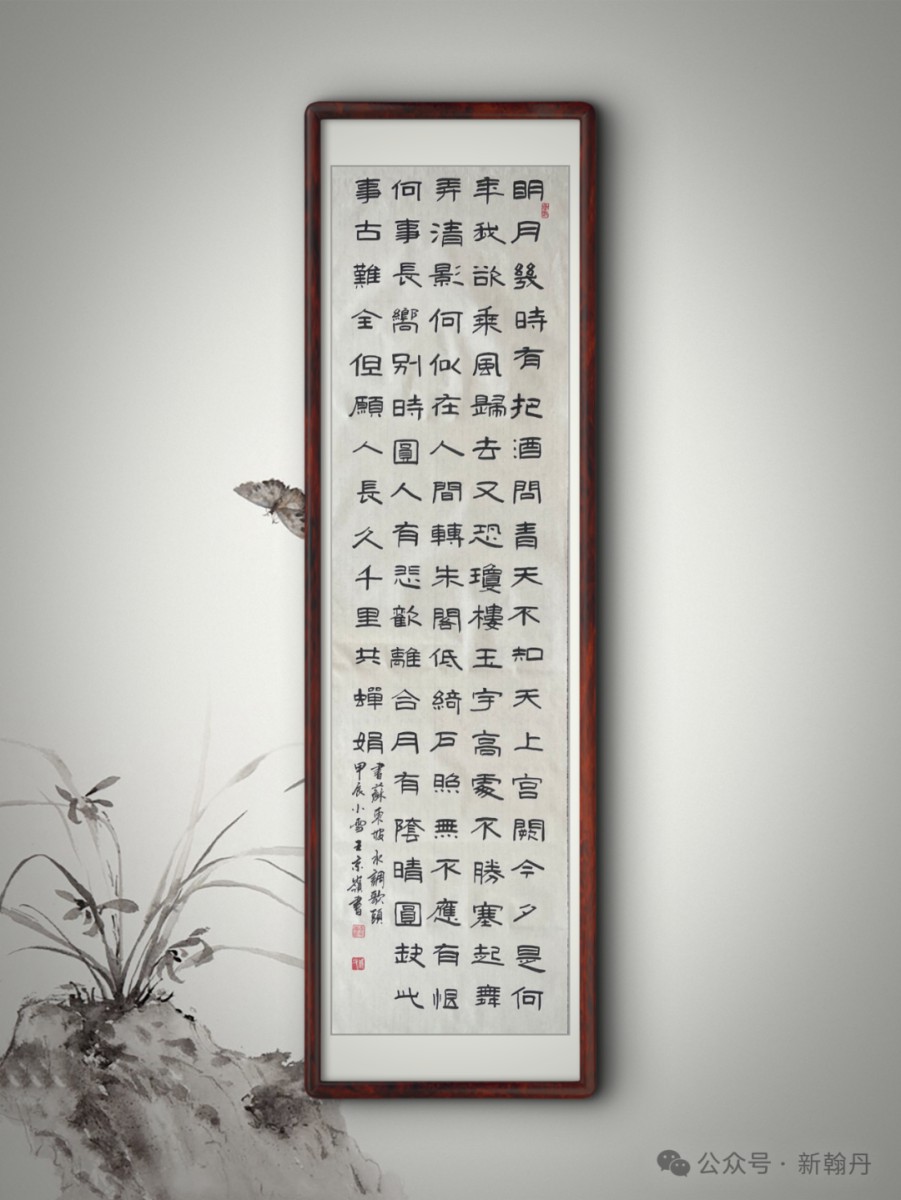 明月幾時有把酒問青天不知天上宫闕今夕是何
年我欲乘風歸去又恐瓊樓玉宇高處不勝寒起舞
弄清影何似在人間轉朱閣低綺户照無不應有恨
何事長嚮别時圓人有悲歡離合月有陰晴圓缺此
事古難全但願人長久千里共蟬娟
書蘇東坡水調歌頭
甲辰小雪王京嶺書
公众号·新翰丹